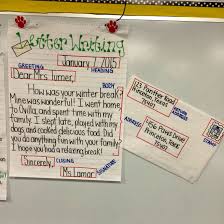 Letter Writing
January 7, 2015
GREETING HEADING
Dear Mrs. Turner,
BODY
How was your winter break?
Mine was wonderful! I went home
to Ovilla, and spent time with my
family. I slept late, played with my
dogs, and cooked delicious food. Did
you do anything fun with your family?
I hope you had a relaxing break!
CLOSING
Sincerely,
Ms. Lamar
SIGNATURE
123 Panther Road
Princeton, Texas
75407
ADDRESS
STAMP
456 Paws Drive
Princeton, Texas